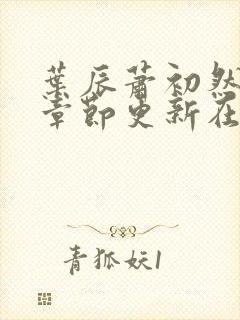 葉辰蕭初然
章節更新在
青狐妖1